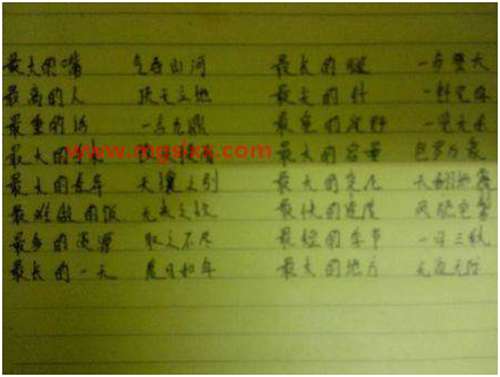 最大的嘴 气吞山河 最长的腿 一步登天
最高的人 顶天立地 最大的针 一针见血
最重的话 一言九鼎 最宽的视野 一览无余
www.mgslxx.com
最大的 最大的容量 包罗万象
最大的差异 天壤之别 最大的变化 天翻地覆
最难做的饭 无米之炊 最快的速度 风驰电掣
最多的资源 取之不尽 最短的季节 一日三秋
最长的一天 度日如年 最大的地方 无边无际